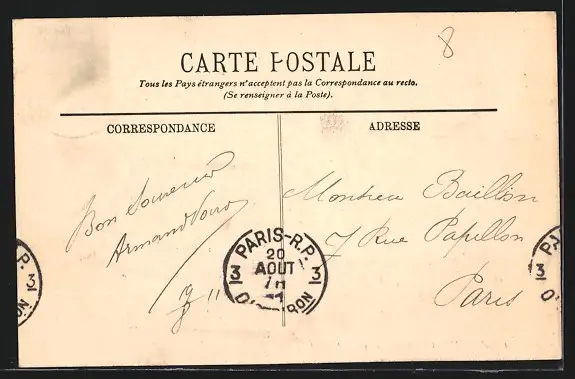 8
CARTE POSTALE
Tous les Pays étrangers n'acceptent pas la Correspondance au recto.
(Se renseigner à la Poste).
CORRESPONDANCE
ADRESSE
Bon Souvenir
Armand
Monsieur Baillon
7 Rue Papillon
Paris
PARIS-R.P.
20
AOUT
3 3
P.
3
ON
PA
3
D